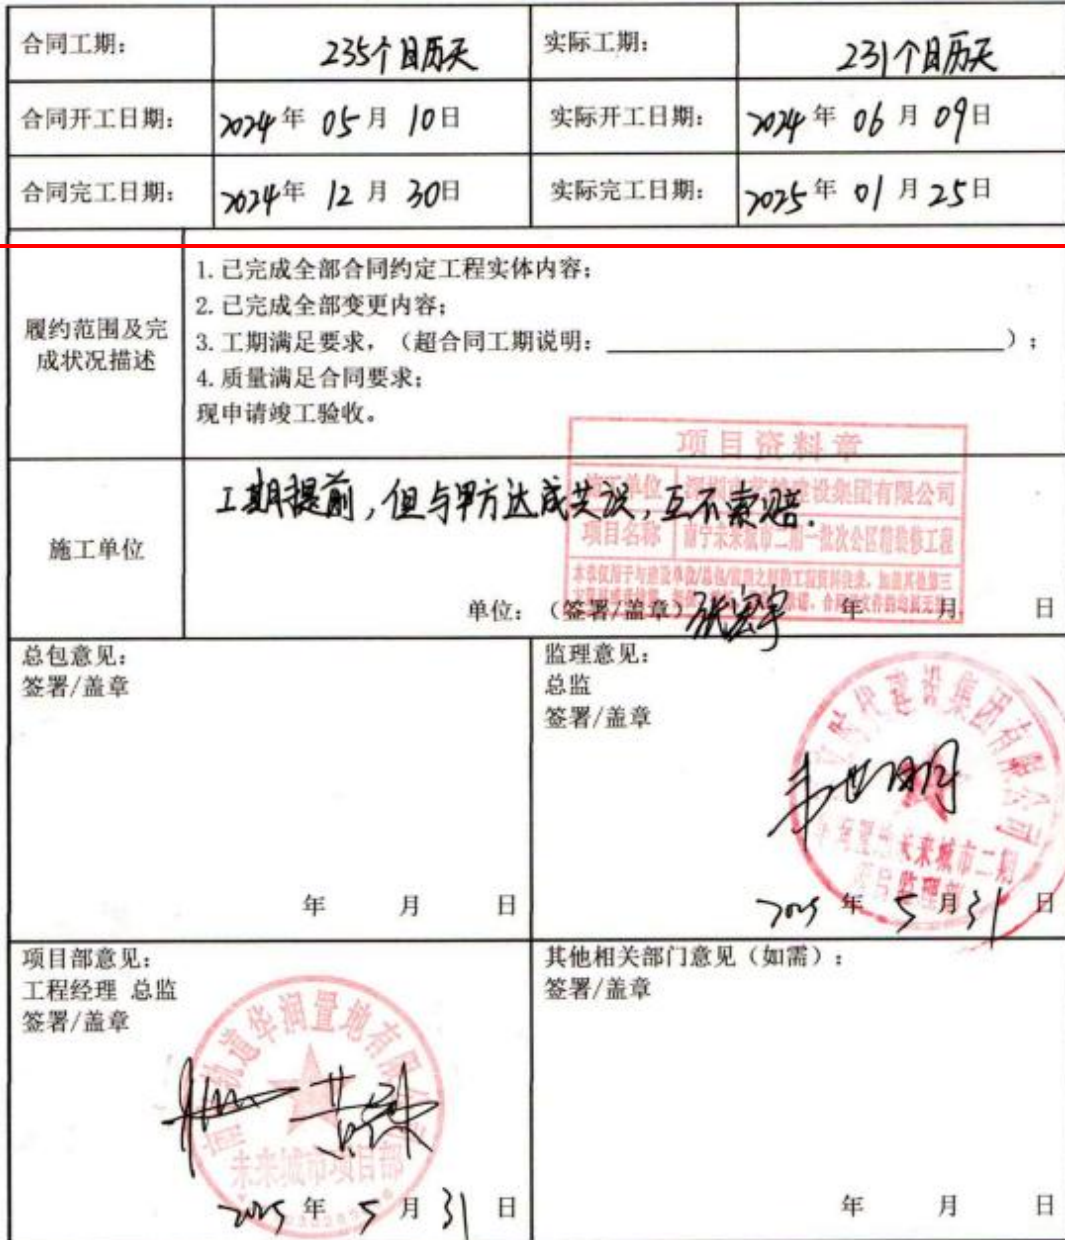 合同工期： 235个日历天 实际工期： 231个日历天
合同开工日期： 2024年 05月 10日 实际开工日期： 2024年 06月 09日
合同完工日期： 2024年 12月 30日 实际完工日期： 2025年 01月 25日
履约范围及完
成状况描述
1.已完成全部合同约定工程实体内容；
2.已完成全部变更内容；
3.工期满足要求，（超合同工期说明：____________________）；
4.质量满足合同要求；
现申请竣工验收。
施工单位
工期提前，但与甲方达成共识，互不索赔.
项目资料章
施工单位 建设集团有限公司
项目名称 南宁未来城市二期一批次公区精装修工程
单位：（签署/盖章） 年 月 日
总包意见：
签署/盖章
年 月 日
监理意见：
总监
签署/盖章
时代建设集团有限公司
未来城市二期
项目监理部
2025 年 5 月 31 日
项目部意见：
工程经理 总监
签署/盖章
轨道华润置地有限
未来城市项目部
2025 年 5 月 31 日
其他相关部门意见（如需）：
签署/盖章
年 月 日